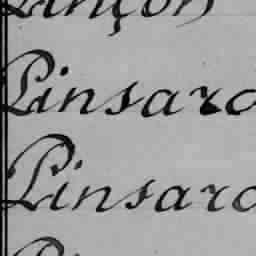 Pinçon
Pinsard
Pinsard